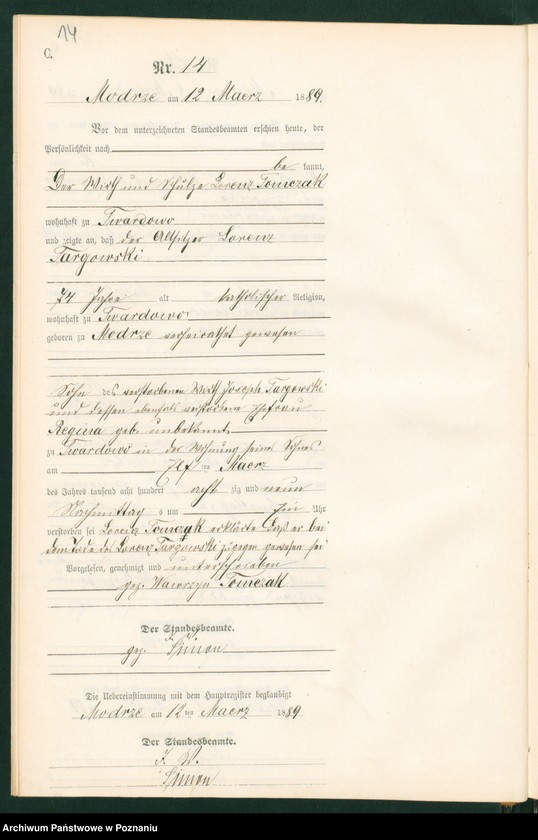 14
C.
Nr. 14
Modrze am 12 Maerz 1889.
Vor dem unterzeichneten Standesbeamten erschien heute, der
Persönlichkeit nach
be kannt,
Der Wirth und Schulze Lorenz Tomczak
wohnhaft zu Twardowo
und zeigte an, daß der Altsitzer Lorenz
Targowski
74 Jahre alt katholischer Religion,
wohnhaft zu Twardowo
geboren zu Modrze verheirathet gewesen
Sohn des verstorbenen Wirth Joseph Targowski
und dessen ebenfalls verstorbene Ehefrau
Regina geb. unbekannt
zu Twardowo in der Wohnung seines Sohnes
am Elf ten Maerz
des Jahres tausend acht hundert acht zig und neun
Nachmittag s um Uhr
verstorben sei Lorenz Tomczak erklärte daß er bei
dem Tode des Lorenz Targowski zugegen gewesen sei
Vorgelesen, genehmigt und unterschrieben
gez. Wawrzyn Tomczak
Der Standesbeamte.
J. V.
gez. Simon
Die Uebereinstimmung mit dem Hauptregister beglaubigt
Modrze am 12 ten Maerz 1889
Der Standesbeamte.
J. V.
Simon
Archiwum Państwowe w Poznaniu